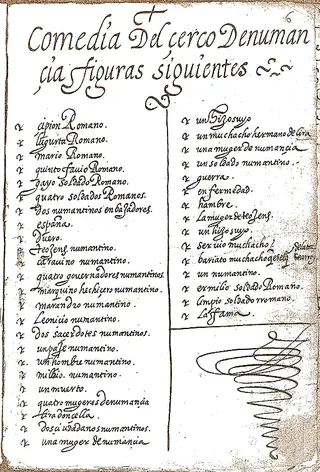 6
Comedia Del çerco Denuman
çia figuras siguientes
çipion Romano.
Iugurta Romano.
mario Romano.
quinto fauio Romano.
gayo soldado Romano.
quatro soldados Romanos.
Dos numantinos enbajadores.
españa.
Duero.
teojens. numantino.
carauino numantino.
quatro gouernadores numantinos
marquino hechicero numantino.
marandro numantino.
Leonicio numantino.
dos sacerdotes numantinos.
un paje numantino.
un hombre numantino.
miluio. numantino.
un muerto.
quatro mugeres denumancia
lira doncella.
dos ciudadanos numantinos.
una muger de numancia
un Hijo suyo
un muchacho hermano de lira
una muger de numançia
un soldado numantino.
guerra.
enfermedad.
hambre.
La muger de teojens.
un hijo suyo.
seruio muchacho
bariato muchacho
un numantino.
ermilio soldado Romano.
limpio soldado rromano.
La ffama